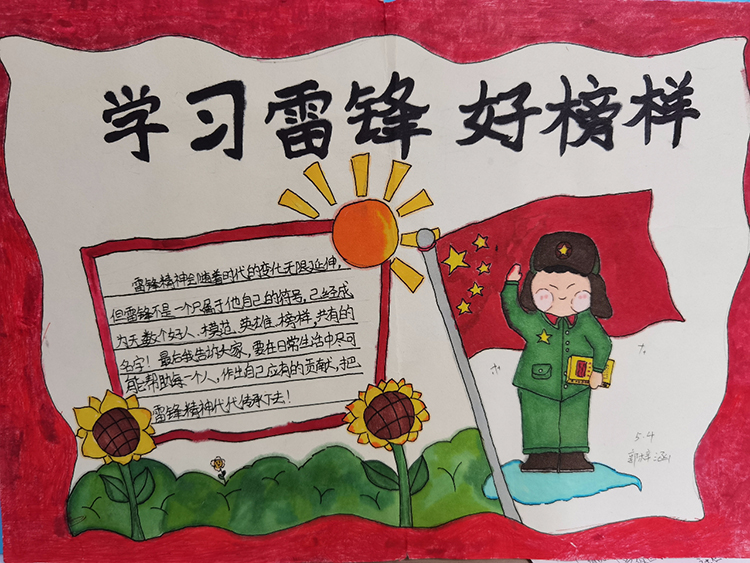 学习雷锋 好榜样
雷锋精神会随着时代的变化无限延伸,
但雷锋不是一个只属于他自己的符号,已经成
为无数个好人、模范、英雄、榜样,共有的
名字!最后我告诉大家,要在日常生活中尽可
能帮助每一个人,作出自己应有的贡献,把
雷锋精神代代传承下去!
5-4